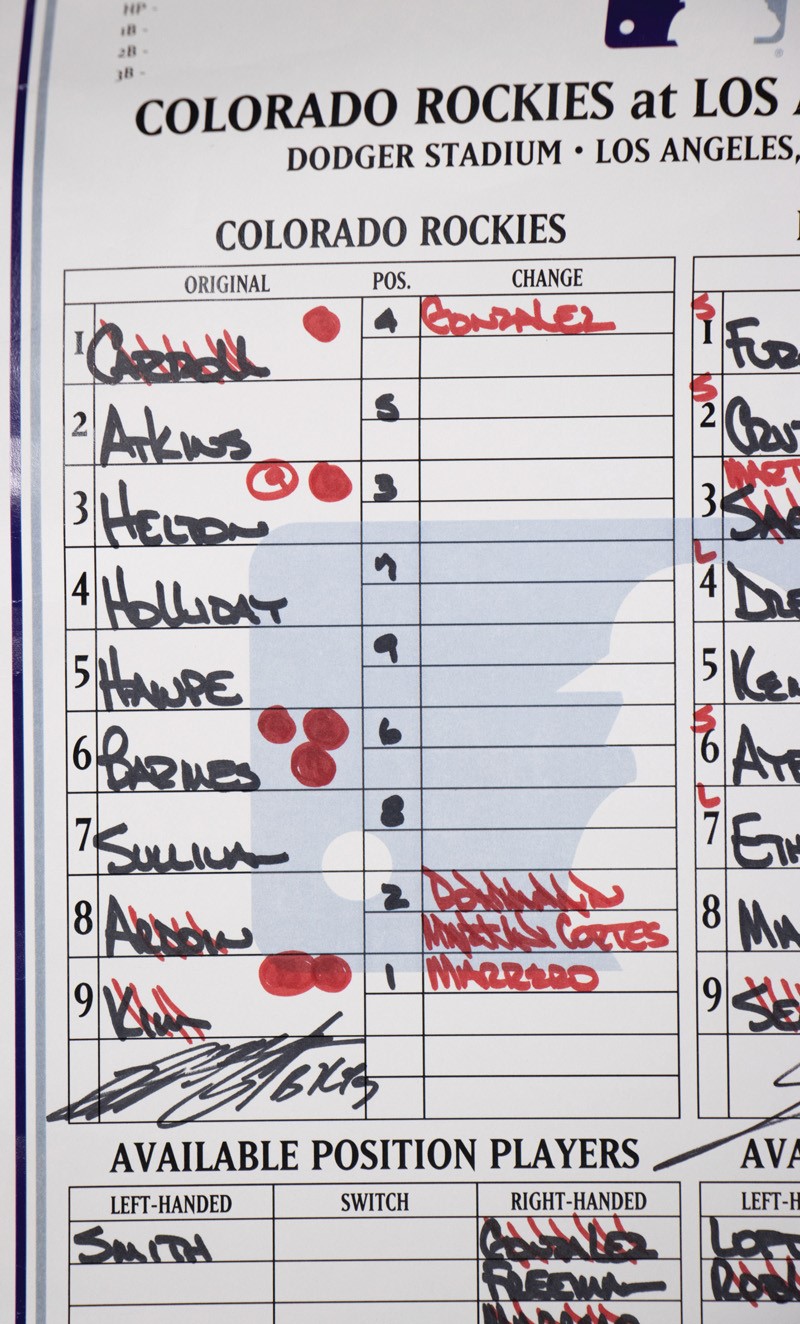 HP -
1B -
2B -
3B -
COLORADO ROCKIES at LOS
DODGER STADIUM • LOS ANGELES,
COLORADO ROCKIES
ORIGINAL POS. CHANGE
1 CARROLL 4 GONZALEZ
2 ATKINS 5
3 HELTON 3
4 HOLLIDAY 7
5 HAWPE 9
6 BARMES 6
7 SULLIVAN 8
8 ARDOIN 2
CORTES
9 KIM 1 MARRERO
S
1 FUR
S
2 CRUZ
3 SAE
L
4 DRE
5 KEN
S
6 AYB
L
7 ETH
8 MA
9 SE
AVAILABLE POSITION PLAYERS
LEFT-HANDED SWITCH RIGHT-HANDED
SMITH GONZALEZ
FREEMAN
MARRERO
AVA
LEFT-H
LOFT